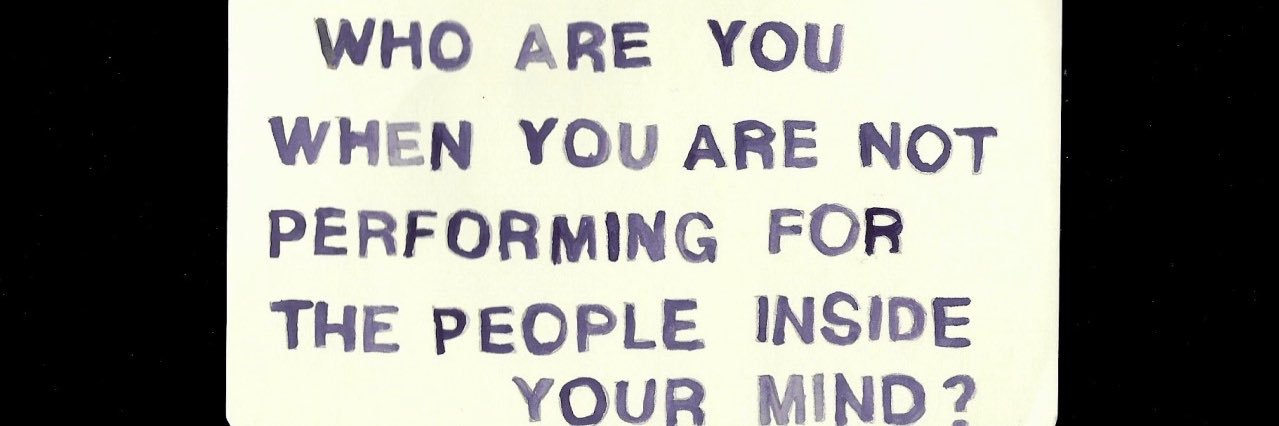 WHO ARE YOU
WHEN YOU ARE NOT
PERFORMING FOR
THE PEOPLE INSIDE
YOUR MIND?